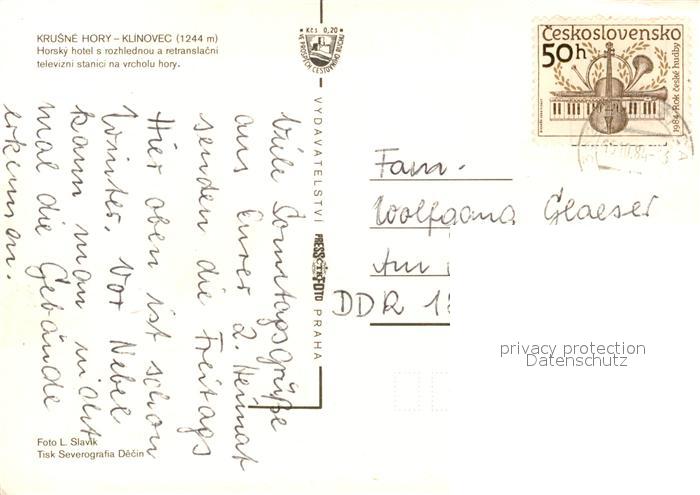 KRUŠNÉ HORY – KLÍNOVEC (1244 m)
Horský hotel s rozhlednou a retranslační
televizní stanicí na vrcholu hory.
Kčs 0,20
VE PROSPĚCH CESTOVNÍHO RUCHU
Československo
50h
1984 · Rok české hudby
VYDAVATELSTVÍ PRESSFOTO PRAHA
Viele Sonntagsgrüße
aus Eurer 2. Heimat
senden die Freitags
Hier oben ist schon
Winter. Vor Nebel
kann man nicht
mal die Gebäude
erkennen.
Fam.
Wolfgang Glaeser
Am
DDR 1
privacy protection
Datenschutz
Foto L. Slavík
Tisk Severografia Děčín